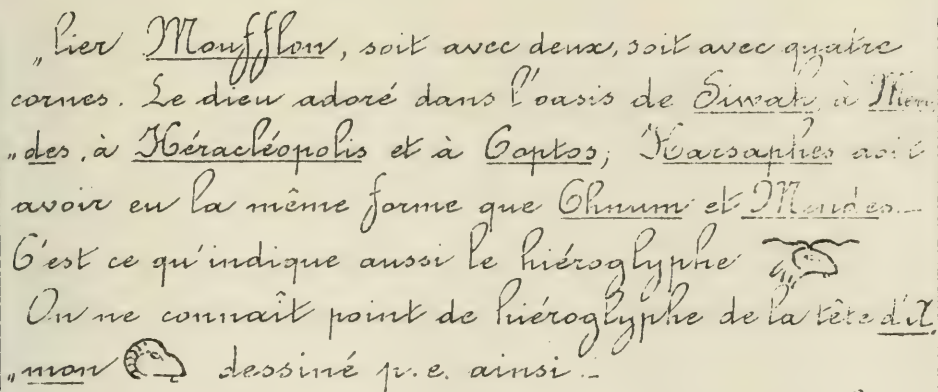 „lier Moufflon, soit avec deux, soit avec quatre
cornes. Le dieu adoré dans l'oasis de Siwah, à Men
„des, à Héracléopolis et à Coptos, Harsaphes doit
avoir eu la même forme que Chnum et Mendes.
C'est ce qu'indique aussi le hiéroglyphe
On ne connait point de hiéroglyphe de la tête d'A
„mon dessiné p.e. ainsi